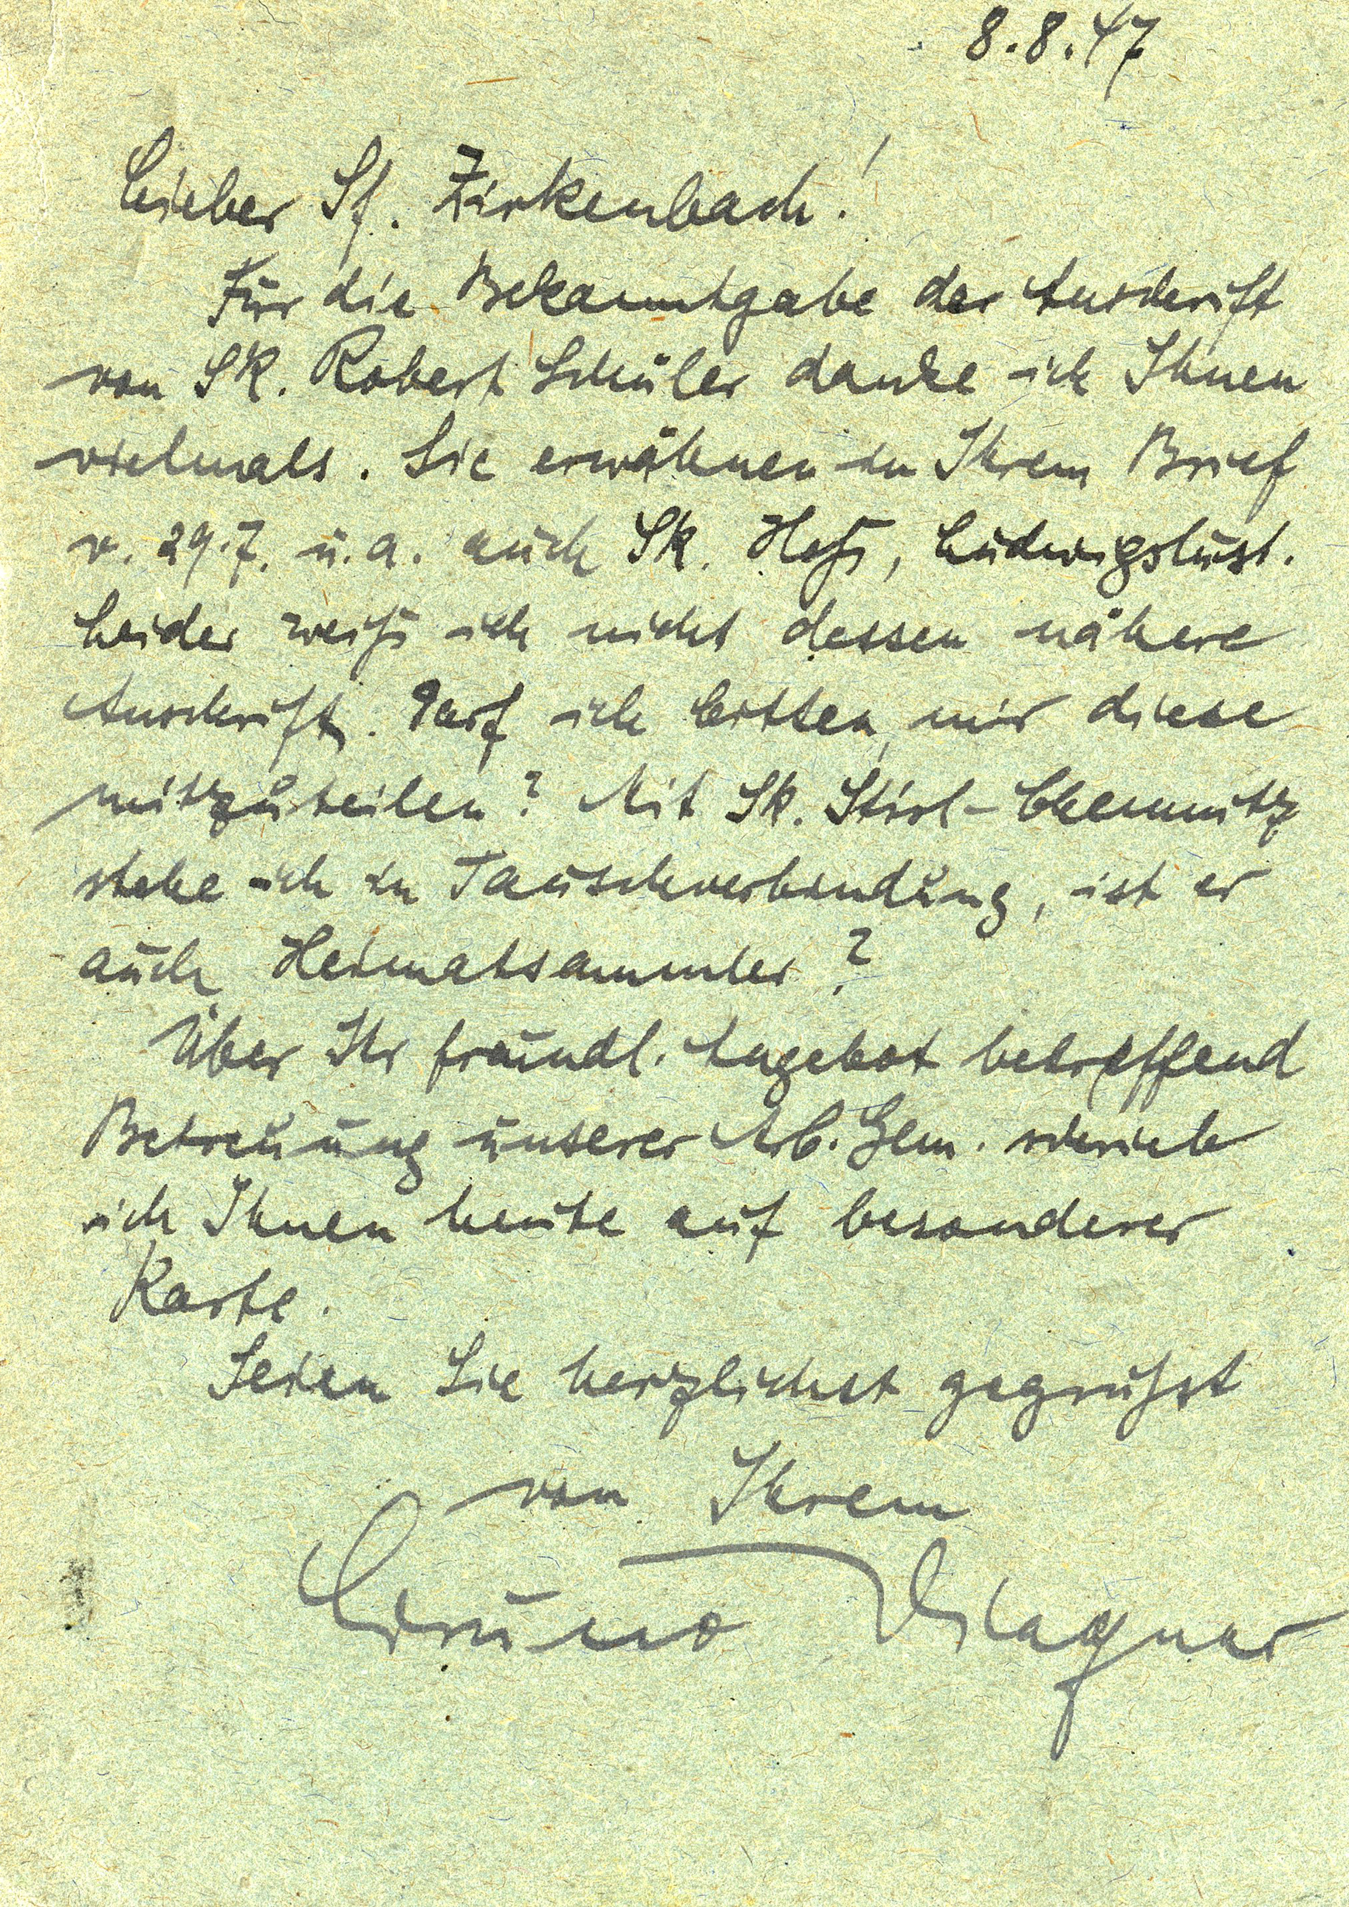 8.8.47
Lieber Sf. Zirkenbach!
Für die Bekanntgabe der Anschrift
von SK. Robert Schüler danke ich Ihnen
vielmals. Sie erwähnen in Ihrem Brief
v. 29.7. u.a. auch Sk. Heß, Ludwigslust.
Leider weiß ich nicht dessen nähere
Anschrift. Darf ich bitten, mir diese
mitzuteilen? Mit Sk. Stirl-Chemnitz
stehe ich in Tauschverbindung, ist er
auch Heimatsammler?
Über Ihr freundl. Angebot betreffend
Betreuung unserer Arb. Gem. schrieb
ich Ihnen heute auf besonderer
Karte.
Seien Sie herzlichst gegrüßt
von Ihrem
Bruno Wagner